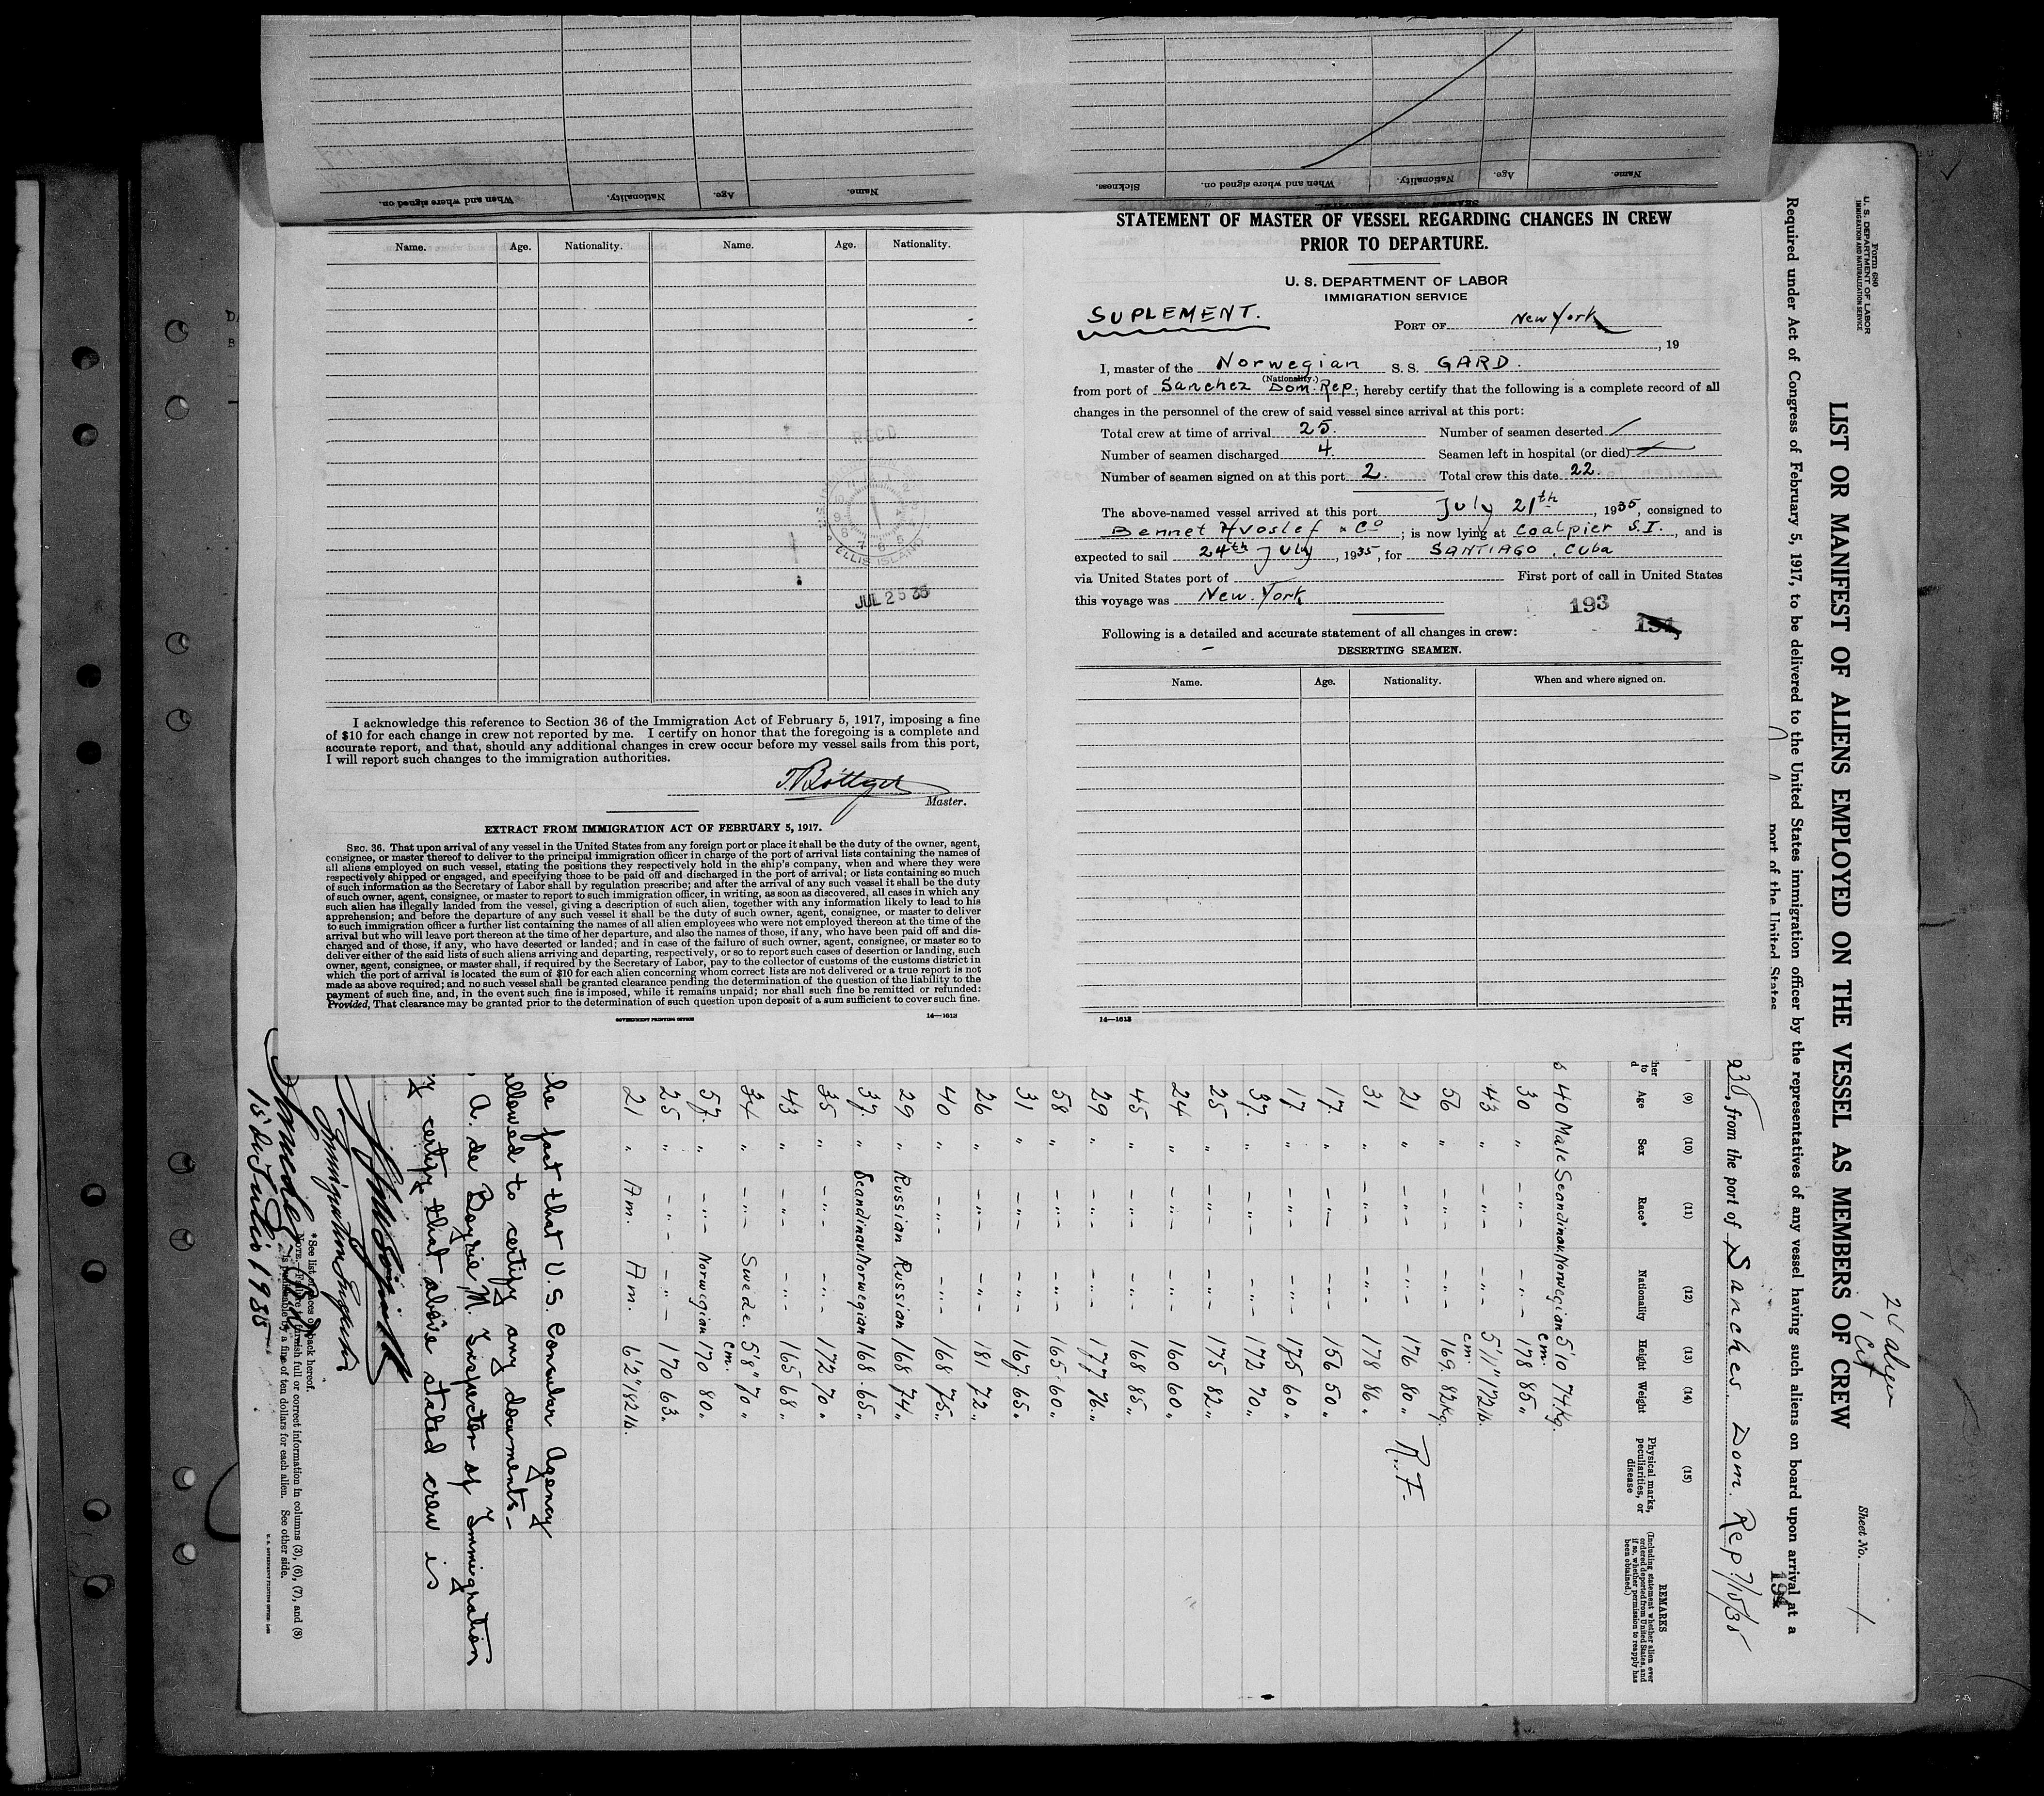 When and where signed on.
Nationality.
Age.
Name.
Sickness.
When and where signed on.
Nationality.
Age.
Name.
Name. Age. Nationality. Name. Age. Nationality.
REC'D
ELLIS ISLAND
JUL 25 35
I acknowledge this reference to Section 36 of the Immigration Act of February 5, 1917, imposing a fine
of $10 for each change in crew not reported by me. I certify on honor that the foregoing is a complete and
accurate report, and that, should any additional changes in crew occur before my vessel sails from this port,
I will report such changes to the immigration authorities.
Master.
EXTRACT FROM IMMIGRATION ACT OF FEBRUARY 5, 1917.
SEC. 36. That upon arrival of any vessel in the United States from any foreign port or place it shall be the duty of the owner, agent,
consignee, or master thereof to deliver to the principal immigration officer in charge of the port of arrival lists containing the names of
all aliens employed on such vessel, stating the positions they respectively hold in the ship's company, when and where they were
respectively shipped or engaged, and specifying those to be paid off and discharged in the port of arrival; or lists containing so much
of such information as the Secretary of Labor shall by regulation prescribe; and after the arrival of any such vessel it shall be the duty
of such owner, agent, consignee, or master to report to such immigration officer, in writing, as soon as discovered, all cases in which any
such alien has illegally landed from the vessel, giving a description of such alien, together with any information likely to lead to his
apprehension; and before the departure of any such vessel it shall be the duty of such owner, agent, consignee, or master to deliver
to such immigration officer a further list containing the names of all alien employees who were not employed thereon at the time of the
arrival but who will leave port thereon at the time of her departure, and also the names of those, if any, who have been paid off and dis-
charged and of those, if any, who have deserted or landed; and in case of the failure of such owner, agent, consignee, or master so to
deliver either of the said lists of such aliens arriving and departing, respectively, or so to report such cases of desertion or landing, such
owner, agent, consignee, or master shall, if required by the Secretary of Labor, pay to the collector of customs of the customs district in
which the port of arrival is located the sum of $10 for each alien concerning whom correct lists are not delivered or a true report is not
made as above required; and no such vessel shall be granted clearance pending the determination of the question of the liability to the
payment of such fine, and, in the event such fine is imposed, while it remains unpaid; nor shall such fine be remitted or refunded:
Provided, That clearance may be granted prior to the determination of such question upon deposit of a sum sufficient to cover such fine.
GOVERNMENT PRINTING OFFICE 14—1613
STATEMENT OF MASTER OF VESSEL REGARDING CHANGES IN CREW
PRIOR TO DEPARTURE.
U. S. DEPARTMENT OF LABOR
IMMIGRATION SERVICE
SUPLEMENT.
PORT OF New York
, 19
I, master of the Norwegian S. S. GARD.
(Nationality.)
from port of Sanchez Dom. Rep.; hereby certify that the following is a complete record of all
changes in the personnel of the crew of said vessel since arrival at this port:
Total crew at time of arrival 25. Number of seamen deserted /
Number of seamen discharged 4. Seamen left in hospital (or died)
Number of seamen signed on at this port 2. Total crew this date 22.
The above-named vessel arrived at this port July 21th, 1935, consigned to
Bennet Hvoslef & Co; is now lying at Coalpier S.I., and is
expected to sail 24th July, 1935, for SANTIAGO, Cuba
via United States port of First port of call in United States
this voyage was New York
193
194
Following is a detailed and accurate statement of all changes in crew:
DESERTING SEAMEN.
Name. Age. Nationality. When and where signed on.
14—1613
Form 680
U. S. DEPARTMENT OF LABOR
IMMIGRATION AND NATURALIZATION SERVICE
24 aliens
1 Cit
Sheet No. 1
LIST OR MANIFEST OF ALIENS EMPLOYED ON THE VESSEL AS MEMBERS OF CREW
Required under Act of Congress of February 5, 1917, to be delivered to the United States immigration officer by the representatives of any vessel having such aliens on board upon arrival at a
port of the United States
194
, from the port of Sanches Dom. Rep. 7/15/35
(9) (10) (11) (12) (13) (14) (15)
Age Sex Race* Nationality Height Weight Physical marks, peculiarities, or disease REMARKS
(Including statement whether alien ever ordered deported from United States, and if so, whether permission to reapply has been obtained.)
40 Male Scandinav. Norwegian 5'10 74Kg.
30 " -"- -"- cm. 178 85"
43 " -"- -"- 5'11" 172lb.
56 " -"- -"- cm. 169 83Kg.
21 " -"- -"- 176 80 "
31 " -"- -"- 178 86 "
17 " -"- -"- 156 50 "
17 " -"- -"- 175 60 "
37 " -"- -"- 172 70 "
25 " -"- -"- 175 82 "
24 " -"- -"- 160 60 "
45 " -"- -"- 168 85 "
29 " -"- -"- 177 76 "
58 " -"- -"- 165 60 "
31 " -"- -"- 167 65 "
26 " -"- -"- 181 72 "
40 " -"- -"- 168 75 "
29 " Russian Russian 168 74 "
37 " Scandinav. Norwegian 168 65 "
35 " -"- -"- 172 70 "
43 " -"- -"- 165 68 "
34 " -"- Swede. 5'8" 70 "
57 " -"- Norwegian cm. 170 80 "
25 " -"- -"- 170 63 "
21 " Am. Am. 6'2" 182 lb.
the fact that U.S. Consular Agency
allowed to certify any documents -
A. de Boyrie M. Inspector of Immigration
certify that above stated crew is
15 de Julio 1935
*See list of races on back hereof.
NOTE.—Failure to furnish full or correct information in columns (3), (6), (7), and (8)
is punishable by a fine of ten dollars for each alien. See other side.